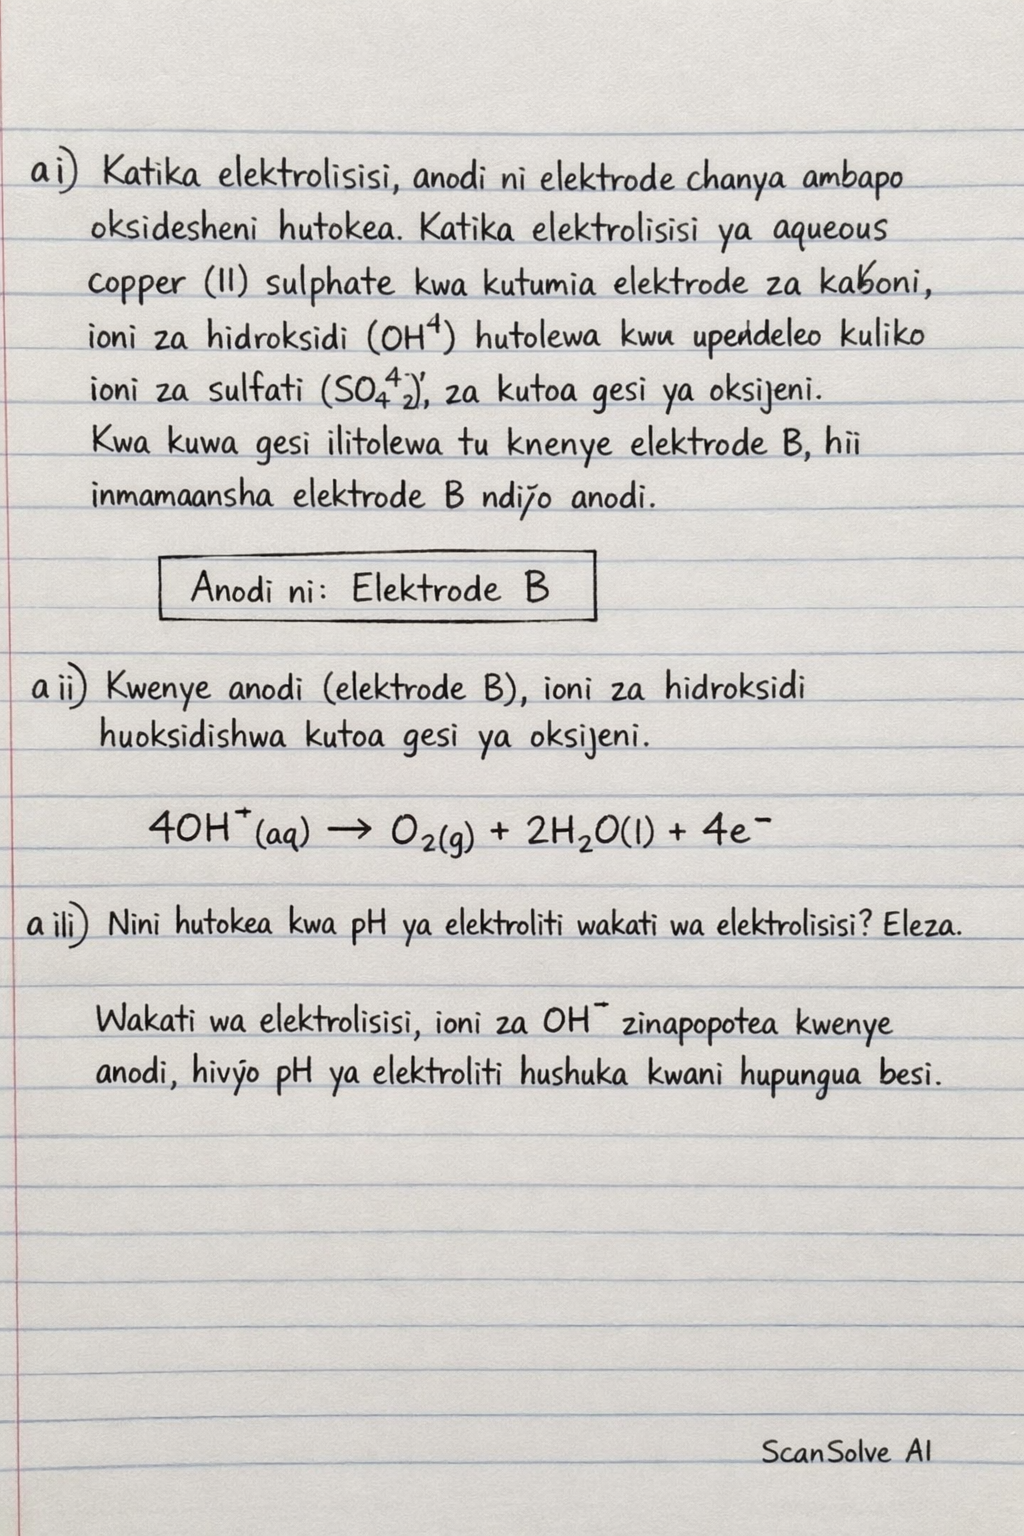 ai) Katika elektrolisisi, anodi ni elektrode chanya ambapo
oksidesheni hutokea. Katika elektrolisisi ya aqueous
copper (II) sulphate kwa kutumia elektrode za kaboni,
ioni za hidroksidi (OH⁴) hutolewa kwu upendeleo kuliko
ioni za sulfati (SO₄⁴⁻₂)', za kutoa gesi ya oksijeni.
Kwa kuwa gesi ilitolewa tu knenye elektrode B, hii
inmamaansha elektrode B ndiyo anodi.
Anodi ni: Elektrode B
a ii) Kwenye anodi (elektrode B), ioni za hidroksidi
huoksidishwa kutoa gesi ya oksijeni.
4OH⁺(aq) → O₂(g) + 2H₂O(l) + 4e⁻
a ili) Nini hutokea kwa pH ya elektroliti wakati wa elektrolisisi? Eleza.
Wakati wa elektrolisisi, ioni za OH⁻ zinapopotea kwenye
anodi, hivyo pH ya elektroliti hushuka kwani hupungua besi.
ScanSolve AI